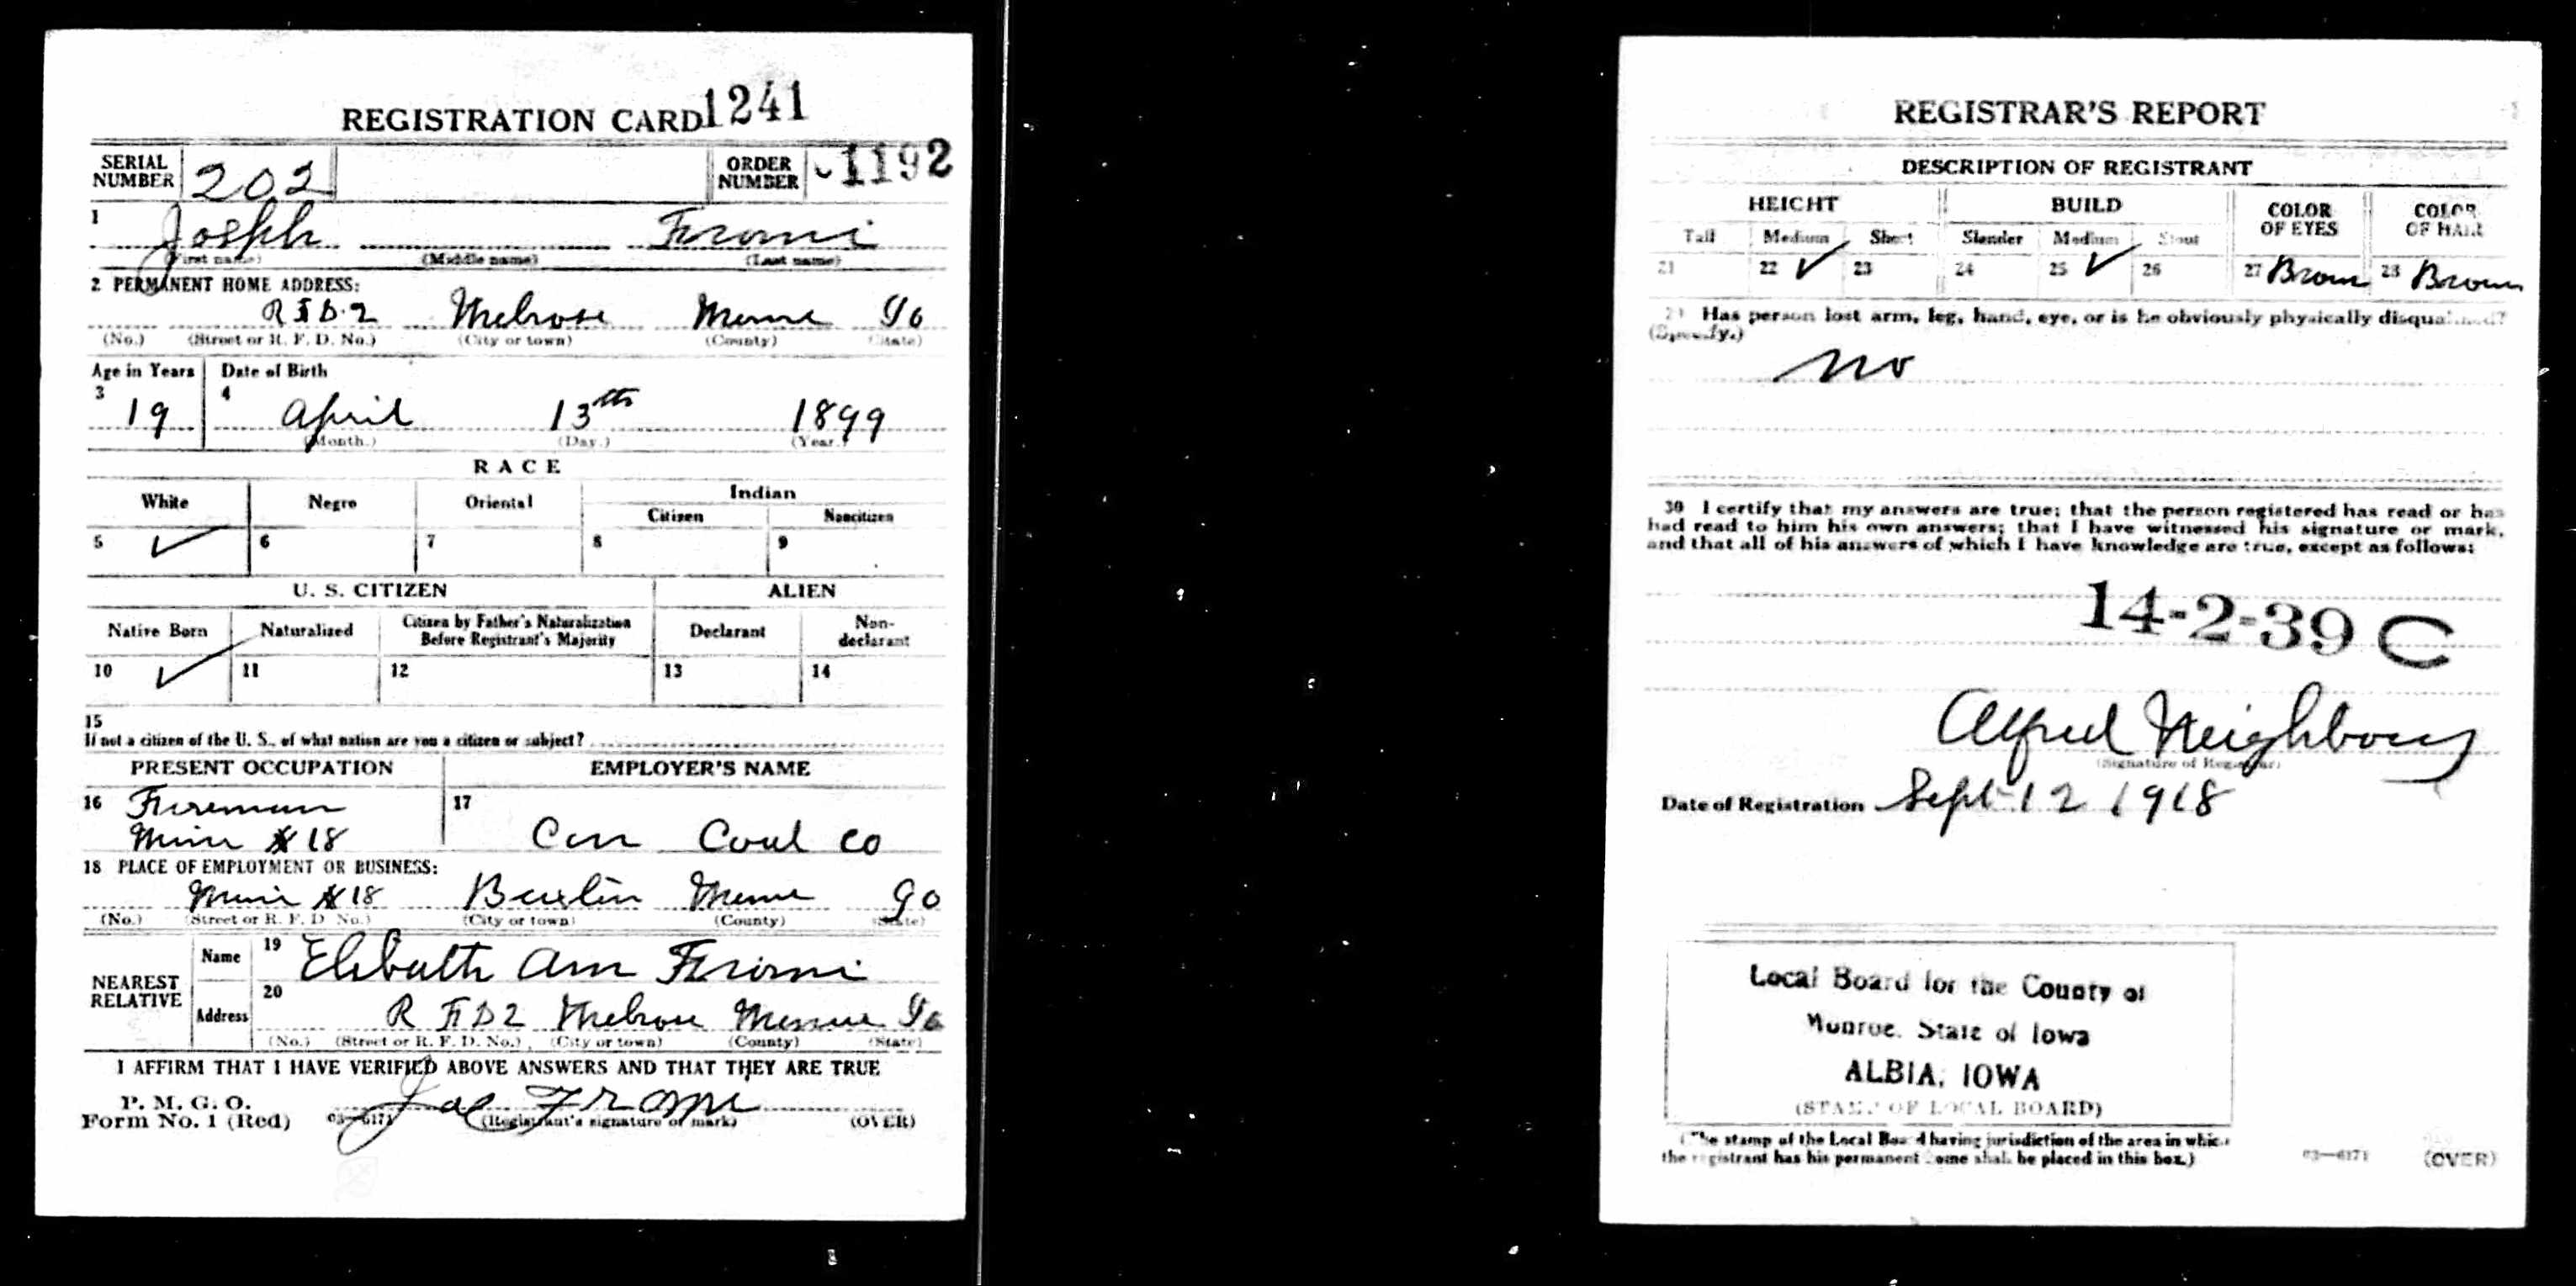 REGISTRATION CARD 1241
SERIAL NUMBER 202 ORDER NUMBER 1192
1 Joseph Fromi
(First name) (Middle name) (Last name)
2 PERMANENT HOME ADDRESS:
R F D. 2 Melrose Monroe Io
(No.) (Street or R. F. D. No.) (City or town) (County) (State)
Age in Years Date of Birth
3 19 4 April 13th 1899
(Month.) (Day.) (Year.)
RACE
White Negro Oriental Indian
Citizen Noncitizen
5 ✓ 6 7 8 9
U. S. CITIZEN ALIEN
Native Born Naturalized Citizen by Father's Naturalization Before Registrant's Majority Declarant Non-declarant
10 ✓ 11 12 13 14
15
If not a citizen of the U. S., of what nation are you a citizen or subject?
PRESENT OCCUPATION EMPLOYER'S NAME
16 Fireman 17
Mine # 18 Con Coal Co
18 PLACE OF EMPLOYMENT OR BUSINESS:
Mine # 18 Buxton Monroe Io
(No.) (Street or R. F. D. No.) (City or town) (County) (State)
NEAREST RELATIVE
Name 19 Ann Fromi
Address 20 R F D 2 Melrose Monroe Io
(No.) (Street or R. F. D. No.) (City or town) (County) (State)
I AFFIRM THAT I HAVE VERIFIED ABOVE ANSWERS AND THAT THEY ARE TRUE
P. M. G. O.
Form No. 1 (Red) 03—6171 Joe Fromi (OVER)
(Registrant's signature or mark)
REGISTRAR'S REPORT
DESCRIPTION OF REGISTRANT
HEIGHT BUILD COLOR OF EYES COLOR OF HAIR
Tall Medium Short Slender Medium Stout
21 22 ✓ 23 24 25 ✓ 26 27 Brown 28 Brown
29 Has person lost arm, leg, hand, eye, or is he obviously physically disqualified?
(Specify.)
no
30 I certify that my answers are true; that the person registered has read or has
had read to him his own answers; that I have witnessed his signature or mark,
and that all of his answers of which I have knowledge are true, except as follows:
14-2-39 C
Alfred Neighbour
(Signature of Registrar)
Date of Registration Sept 12 1918
Local Board for the County of
Monroe. State of Iowa
ALBIA, IOWA
(STAMP OF LOCAL BOARD)
(The stamp of the Local Board having jurisdiction of the area in which
the registrant has his permanent home shall be placed in this box.)
03—6171 (OVER)